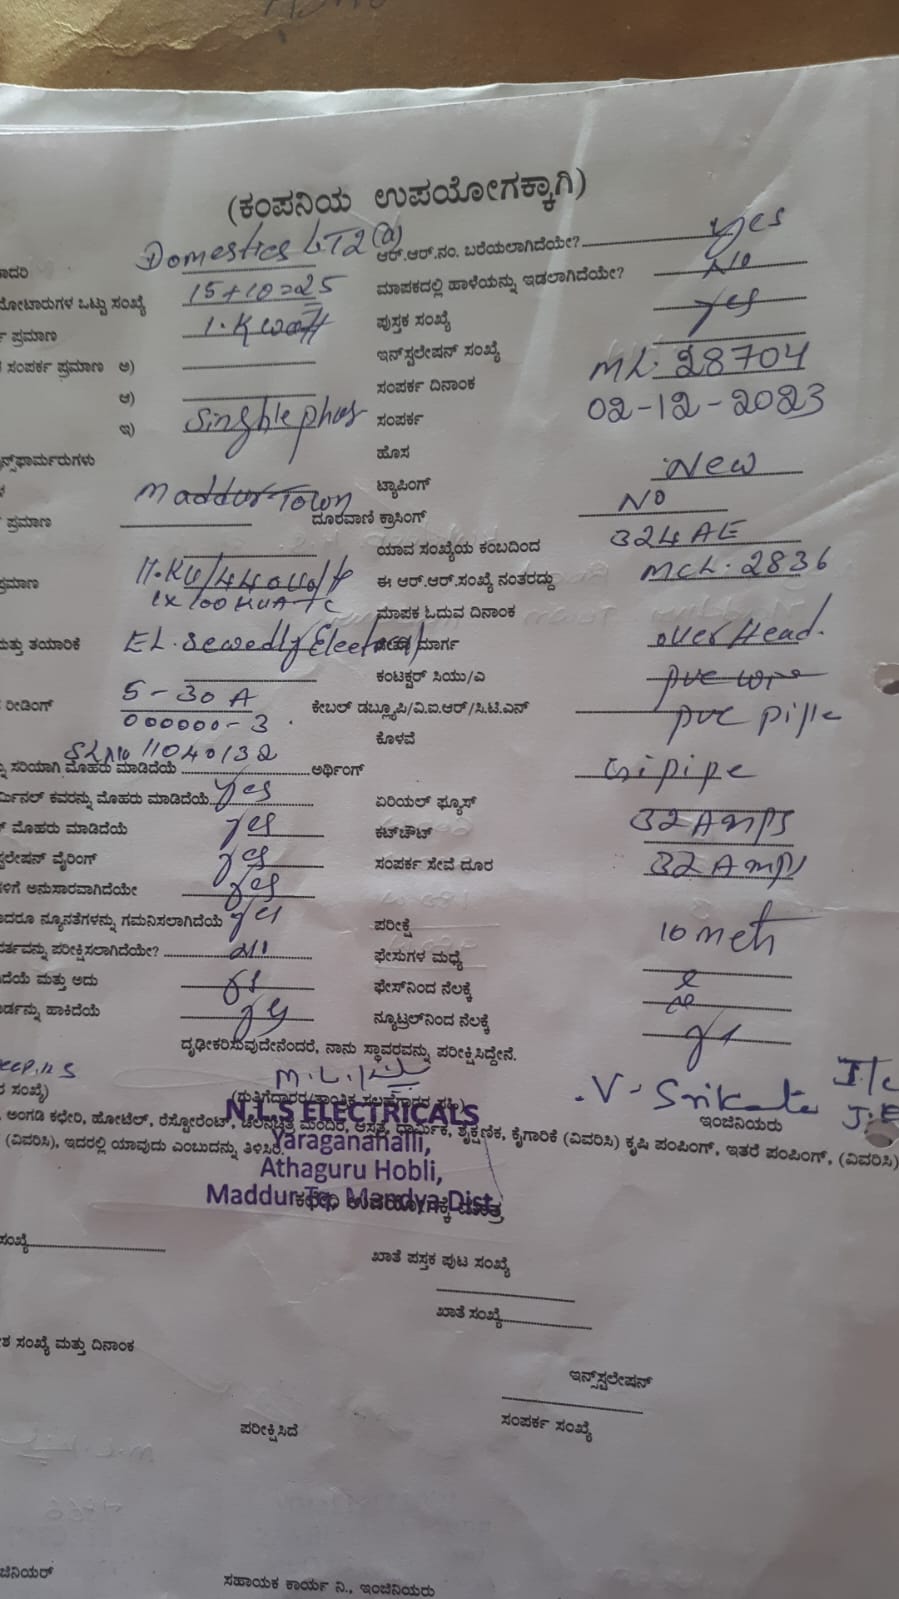 (ಕಂಪನಿಯ ಉಪಯೋಗಕ್ಕಾಗಿ)
ಾದರಿ Domestics LT2(a) ಆರ್.ಆರ್.ನಂ. ಬರೆಯಲಾಗಿದೆಯೇ? yes
ಮೋಟಾರುಗಳ ಒಟ್ಟು ಸಂಖ್ಯೆ 15+10=25 ಮಾಪಕದಲ್ಲಿ ಹಾಳೆಯನ್ನು ಇಡಲಾಗಿದೆಯೇ? NO
ಪ್ರಮಾಣ 1.Kwatt ಪುಸ್ತಕ ಸಂಖ್ಯೆ yes
ಸಂಪರ್ಕ ಪ್ರಮಾಣ ಅ) ಇನ್‌ಸ್ಟಲೇಷನ್ ಸಂಖ್ಯೆ ML. 28704
ಆ) ಸಂಪರ್ಕ ದಿನಾಂಕ 02-12-2023
ಇ) Singhle phas ಸಂಪರ್ಕ
ನ್ಸ್‌ಫಾರ್ಮರುಗಳು ಹೊಸ New
Maddur Town ಟ್ಯಾಪಿಂಗ್ NO
ಪ್ರಮಾಣ ದೂರವಾಣಿ ಕ್ರಾಸಿಂಗ್
ಯಾವ ಸಂಖ್ಯೆಯ ಕಂಬದಿಂದ 324 AE
ಪ್ರಮಾಣ 11.KV/440 ಈ ಆರ್.ಆರ್.ಸಂಖ್ಯೆ ನಂತರದ್ದು MCL. 2836
1x100 KVA TC ಮಾಪಕ ಓದುವ ದಿನಾಂಕ
ಮತ್ತು ತಯಾರಿಕೆ EL. Sewedly Electrical ಮಾರ್ಗ over Head.
ಕಂಟಕ್ಟರ್ ಸಿಯು/ಎ pvc wire
ರೀಡಿಂಗ್ 5-30 A ಕೇಬಲ್ ಡಬ್ಲ್ಯೂಪಿ/ವಿ.ಐ.ಆರ್/ಸಿ.ಟಿ.ಎನ್ pvc
000000-3. ಕೊಳವೆ
SLNo 11040132
ಸರಿಯಾಗಿ ಮೊಹರು ಮಾಡಿದೆಯೆ ಅರ್ಥಿಂಗ್ Gi pipe
ರ್ಮಿನಲ್ ಕವರನ್ನು ಮೊಹರು ಮಾಡಿದೆಯೆ. yes ಏರಿಯಲ್ ಫ್ಯೂಸ್
ಮೊಹರು ಮಾಡಿದೆಯೆ yes ಕಟ್‌ಔಟ್ 32 Amps
ಸ್ಟಲೇಷನ್ ವೈರಿಂಗ್ yes ಸಂಪರ್ಕ ಸೇವೆ ದೂರ 32 Amps
ಳಿಗೆ ಅನುಸಾರವಾಗಿದೆಯೇ yes
ಾದರೂ ನ್ಯೂನತೆಗಳನ್ನು ಗಮನಿಸಲಾಗಿದೆಯೆ yes ಪರೀಕ್ಷೆ 10 metr
ವರ್ತವನ್ನು ಪರೀಕ್ಷಿಸಲಾಗಿದೆಯೇ? ಫೇಸುಗಳ ಮಧ್ಯೆ
ದೆಯೆ ಮತ್ತು ಅದು ಫೇಸ್‌ನಿಂದ ನೆಲಕ್ಕೆ
ರ್ಡನ್ನು ಹಾಕಿದೆಯೆ ನ್ಯೂಟ್ರಲ್‌ನಿಂದ ನೆಲಕ್ಕೆ
ದೃಢೀಕರಿಸುವುದೇನೆಂದರೆ, ನಾನು ಸ್ಥಾವರವನ್ನು ಪರೀಕ್ಷಿಸಿದ್ದೇನೆ.
V- Srikanta
ಸಂಖ್ಯೆ) ಇಂಜಿನಿಯರು
N.L.S ELECTRICALS
ಅಂಗಡಿ ಕಛೇರಿ, ಹೋಟೆಲ್, ರೆಸ್ಟೋರೆಂಟ್, ಚಲನಚಿತ್ರ ಮಂದಿರ, ಆಸ್ಪತ್ರೆ, ಧಾರ್ಮಿಕ, ಶೈಕ್ಷಣಿಕ, ಕೈಗಾರಿಕೆ (ವಿವರಿಸಿ) ಕೃಷಿ ಪಂಪಿಂಗ್, ಇತರೆ ಪಂಪಿಂಗ್, (ವಿವರಿಸಿ)
(ವಿವರಿಸಿ), ಇದರಲ್ಲಿ ಯಾವುದು ಎಂಬುದನ್ನು ತಿಳಿಸಿರಿ.
Yaraganahalli,
Athaguru Hobli,
Maddur Tq, Mandya Dist.
ಸಂಖ್ಯೆ ಖಾತೆ ಪುಸ್ತಕ ಪುಟ ಸಂಖ್ಯೆ
ಖಾತೆ ಸಂಖ್ಯೆ
ಸಂಖ್ಯೆ ಮತ್ತು ದಿನಾಂಕ
ಇನ್ಸ್‌ಸ್ಟಲೇಷನ್
ಪರೀಕ್ಷಿಸಿದೆ ಸಂಪರ್ಕ ಸಂಖ್ಯೆ
ಜಿನಿಯರ್ ಸಹಾಯಕ ಕಾರ್ಯ ನಿ., ಇಂಜಿನಿಯರು